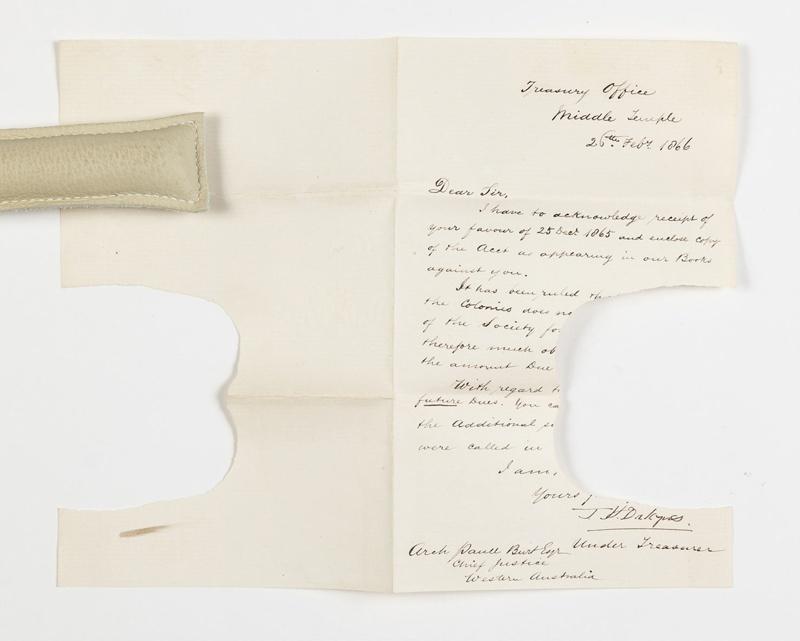 Treasury Office
Middle Temple
26th Feby. 1866
Dear Sir,
I have to acknowledge receipt of
your favour of 25 Decr. 1865 and enclose copy
of the Acct as appearing in our Books
against you.
It has been ruled
the Colonies does
of the Society
therefore much
the amount Due
With regard
future Dues. You
the Additional
were called in
I am,
Yours
Under Treasurer
Arch Paull Burt Esqr
Chief Justice
Western Australia